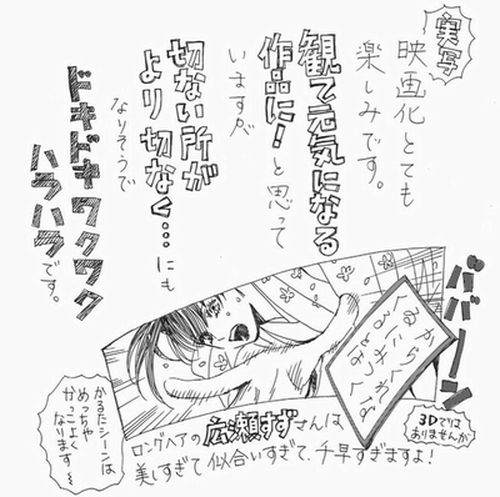 実写
映画化とても
楽しみです。
観て元気になる
作品に!と思って
いますが
切ない所が
より切なく…にも
なりそうで
ドキドキワクワク
ハラハラです。
ババーン
からくれ
3Dでは
ありませんが
ロングヘアの広瀬すずさんは
美しすぎて似合いすぎて、千早すぎますよ!
かるたシーンは
めっちゃ
かっこよく
なります〜